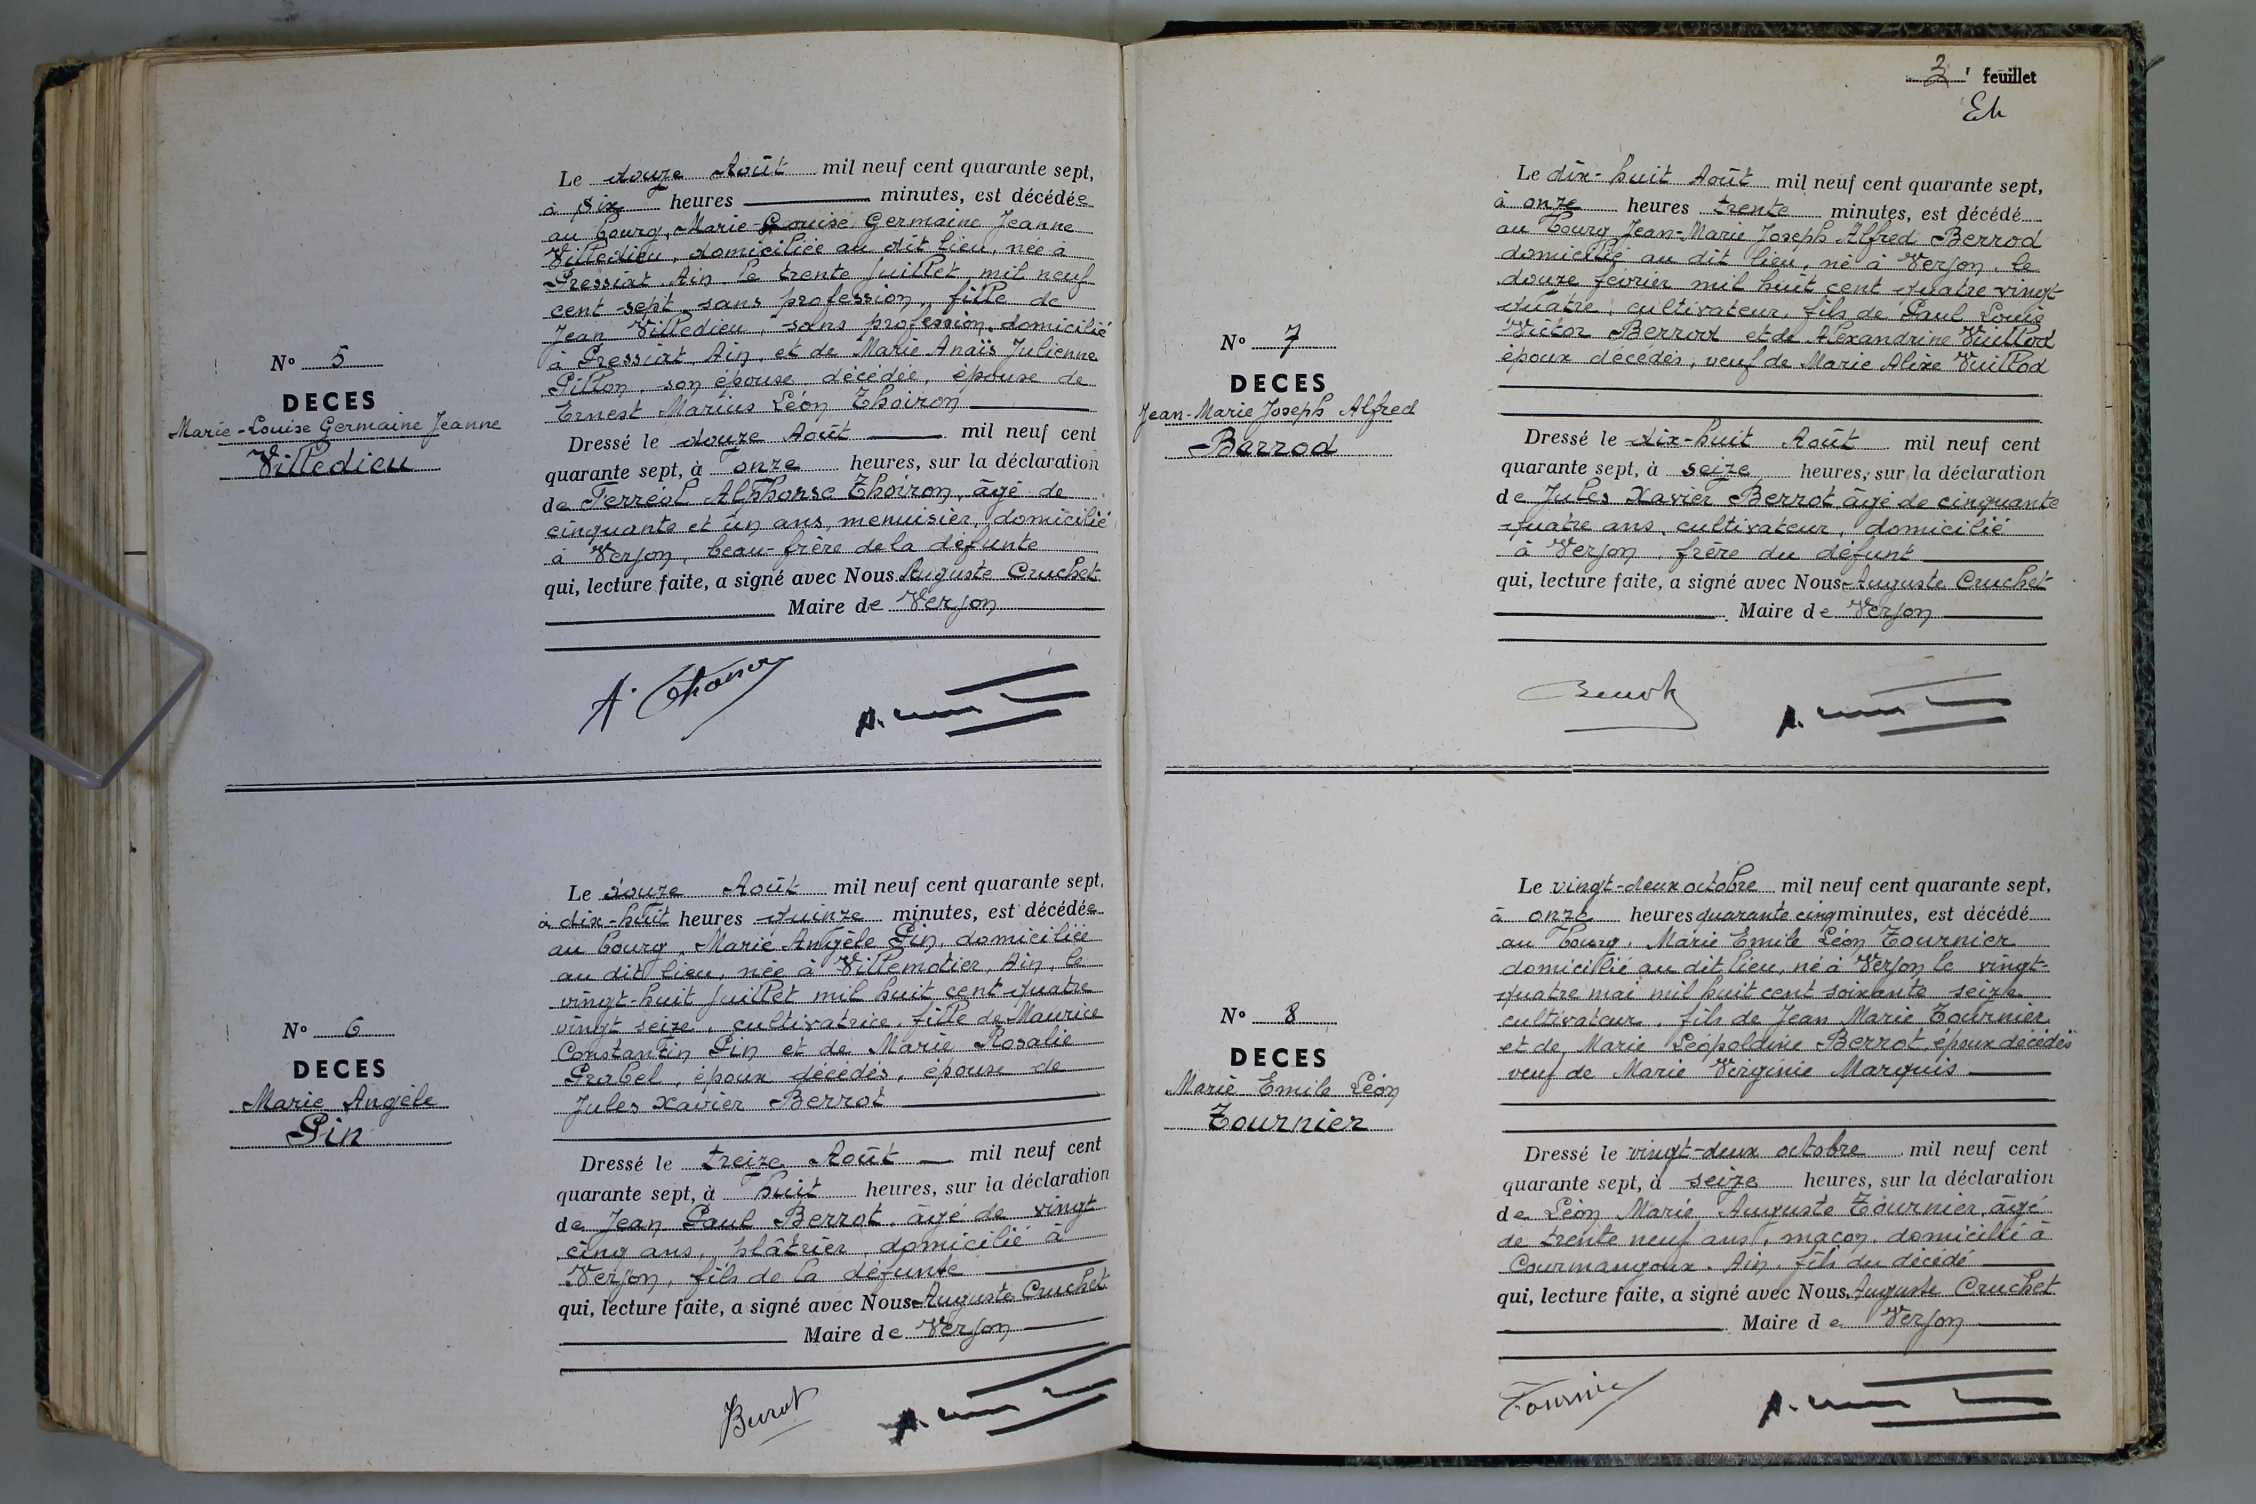 Le douze Août mil neuf cent quarante sept,
à six heures minutes, est décédée
au bourg, Marie-Louise Germaine Jeanne
Villedieu, domiciliée au dit lieu, née à
Pressiat, Ain, le trente juillet mil neuf
cent sept, sans profession, fille de
Jean Villedieu, sans profession, domicilié
à Pressiat, Ain, et de Marie Anaïs Julienne
Pillon, son épouse décédée, épouse de
Ernest Marius Léon Thoiron
N° 5
DECES
Marie-Louise Germaine Jeanne
Villedieu
Dressé le douze Août mil neuf cent
quarante sept, à onze heures, sur la déclaration
de Ferréol Alphonse Thoiron, âgé de
cinquante et un ans, menuisier, domicilié
à Verjon, beau-frère de la défunte
qui, lecture faite, a signé avec Nous Auguste Cruchet
Maire de Verjon
Le douze Août mil neuf cent quarante sept,
à dix-huit heures quinze minutes, est décédée
au bourg, Marie Angèle Pin, domiciliée
au dit lieu, née à Villemotier, Ain, le
vingt-huit juillet mil huit cent quatre
vingt seize, cultivatrice, fille de Maurice
Constantin Pin et de Marie Rosalie
Prabel, époux décédés, épouse de
Jules Xavier Berrot
N° 6
DECES
Marie Angèle
Pin
Dressé le treize Août mil neuf cent
quarante sept, à huit heures, sur la déclaration
de Jean Paul Berrot, âgé de vingt
cinq ans, plâtrier, domicilié à
Verjon, fils de la défunte
qui, lecture faite, a signé avec Nous Auguste Cruchet
Maire de Verjon
Berrot
feuillet
Le dix-huit Août mil neuf cent quarante sept,
à onze heures trente minutes, est décédé
au bourg Jean-Marie Joseph Alfred Berrod
domicilié au dit lieu, né à Verjon, le
douze février mil huit cent quatre vingt
quatre, cultivateur, fils de Paul Louis
Victor Berrod et de Alexandrine Vuillod
époux décédés, veuf de Marie Alixe Vuillod
N° 7
DECES
Jean-Marie Joseph Alfred
Berrod
Dressé le dix-huit Août mil neuf cent
quarante sept, à seize heures, sur la déclaration
de Jules Xavier Berrot âgé de cinquante
quatre ans, cultivateur, domicilié
à Verjon, frère du défunt
qui, lecture faite, a signé avec Nous Auguste Cruchet
Maire de Verjon
Le vingt-deux octobre mil neuf cent quarante sept,
à onze heures quarante cinq minutes, est décédé
au bourg, Marie Emile Léon Tournier
domicilié au dit lieu, né à Verjon le vingt-
quatre mai mil huit cent soixante seize
cultivateur, fils de Jean Marie Tournier
et de Marie Léopoldine Berrot, époux décédés
veuf de Marie Virginie Marquis
N° 8
DECES
Marie Emile Léon
Tournier
Dressé le vingt-deux octobre mil neuf cent
quarante sept, à seize heures, sur la déclaration
de Léon Marie Auguste Tournier, âgé
de trente neuf ans, maçon, domicilié à
Courmangoux, Ain, fils du décédé
qui, lecture faite, a signé avec Nous, Auguste Cruchet
Maire de Verjon
Tournier